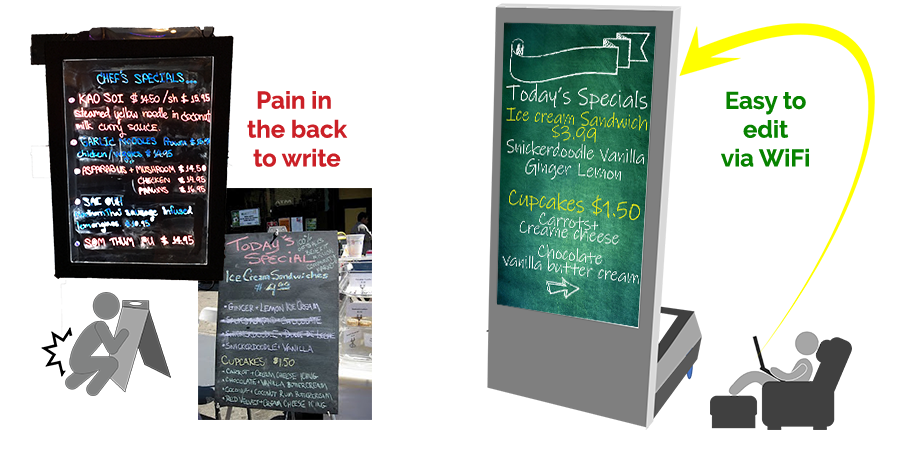 CHEF'S SPECIALS...
KAO SOI $14.50/sh $15.95
steamed yellow noodle in coconut
milk curry sauce.
GARLIC NOODLES
chicken/veggies $14.95
ASPARAGUS + MUSHROOM $14.50
CHICKEN $14.95
PRAWNS $16.95
SAI OUA
Northern Thai sausage infused
lemongrass $10.95
SOM THUM PU $14.95
Pain in
the back
to write
TODAY'S
SPECIAL
ICE CREAM SANDWICHES
GINGER + LEMON ICE CREAM
SNICKERDOODLE + VANILLA
CUPCAKES $1.50
CARROT + CREAM CHEESE ICING
CHOCOLATE + VANILLA BUTTERCREAM
COCONUT + COCONUT RUM BUTTERCREAM
RED VELVET + CREAM CHEESE ICING
Today's Specials
Ice cream Sandwich
$3.99
Snickerdoodle Vanilla
Ginger Lemon
Cupcakes $1.50
Carrots+
Creame cheese
Chocolate
Vanilla butter cream
Easy to
edit
via WiFi